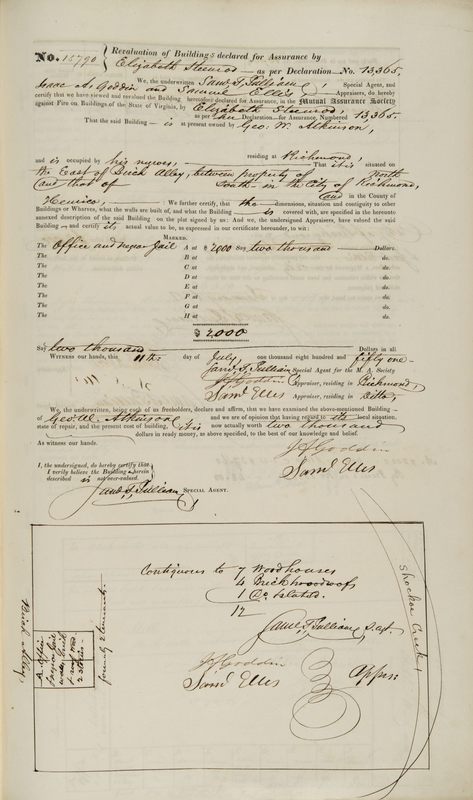 No. 15790 Revaluation of Buildings declared for Assurance by
Elizabeth — as per Declaration No. 13,365.
We, the underwritten Saml. T. Pulliam, Special Agent, and
Isaac A. Goddin and Samuel Ellis Appraisers, do hereby
certify that we have viewed and revalued the Building hereinafter declared for Assurance, in the Mutual Assurance Society
against Fire on Buildings of the State of Virginia, by Elizabeth
as per Declaration for Assurance, Numbered 13,365.
That the said Building — is at present owned by Geo. W. Atkinson,
and is occupied by his residing at Richmond, That it is situated on
the East of Brick Alley, between property of North
and that of South in the City of Richmond,
Henrico, and in the County of
: We further certify, that the dimensions, situation and contiguity to other
Buildings or Wharves, what the walls are built of, and what the Building — is covered with, are specified in the hereunto
annexed description of the said Building on the plot signed by us: And we, the undersigned Appraisers, have valued the said
Building — and certify its actual value to be, as expressed in our certificate hereunder, to wit:
MARKED.
The Office and Negro Jail A at $ 2000 Say two thousand Dollars.
The B at do.
The C at do.
The D at do.
The E at do.
The F at do.
The G at do.
The H at do.
$ 2,000
Say two thousand Dollars in all
WITNESS our hands, this 11th day of July, one thousand eight hundred and fifty one
Saml. T. Pulliam Special Agent for the M. A. Society
Goddin Appraiser, residing in Richmond
Saml Ellis Appraiser, residing in Ditto
We, the underwritten, being each of us freeholders, declare and affirm, that we have examined the above-mentioned Building —
of Geo. W. Atkinson and we are of opinion that having regard to its local situation,
state of repair, and the present cost of building, it is now actually worth two thousand
dollars in ready money, as above specified, to the best of our knowledge and belief.
As witness our hands.
Goddin
Saml Ellis
I, the undersigned, do hereby certify that
I verily believe the Building wherein
described is not over-valued.
Saml. T. Pulliam SPECIAL AGENT.
Contiguous to 7 Wood houses
4 Brick woodroofs
1 Do slated.
12
Saml. T. Pulliam S. Agt.
Goddin
Saml Ellis Apprs:
Shockoe Creek
Brick Alley
A. Office
Negro Jail
walls Brick
2 stories
formerly 2 tenements